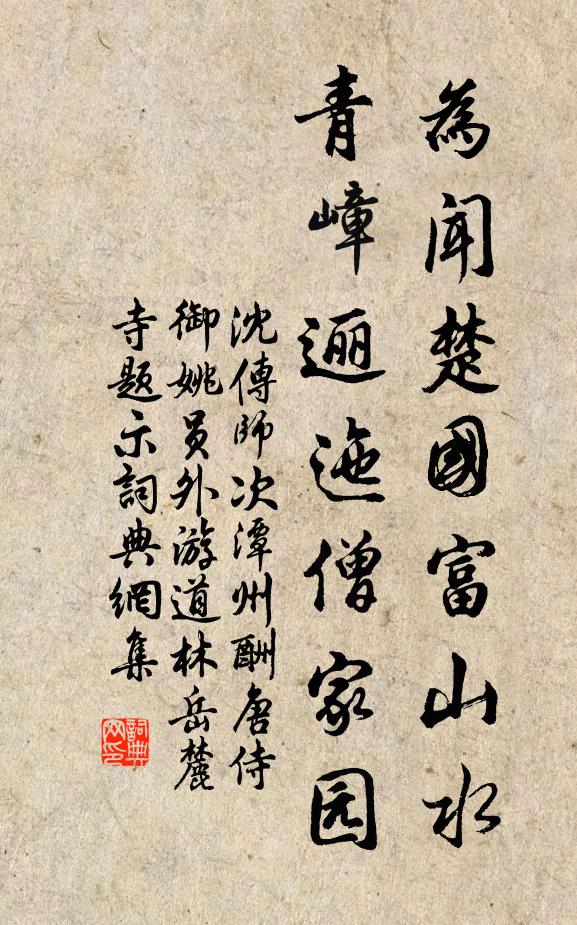 為闻楚國富山水
青嶂逦迤僧家园
沈傳師次潭州酬唐侍
御姚员外游道林岳麓
寺题示詞典網集
詞典网印